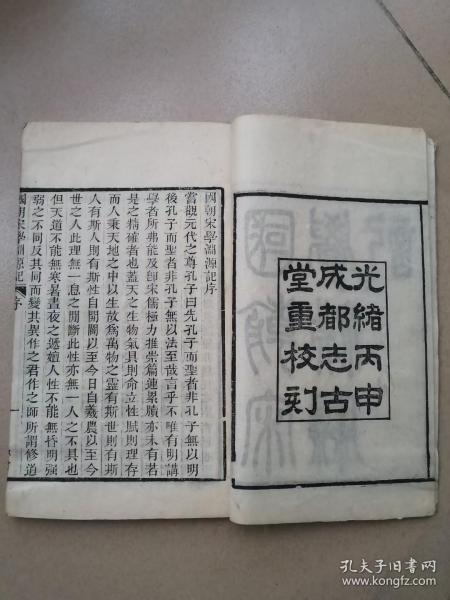 光緒丙申
成都志古
堂重校刻
國朝宋學淵源記序
嘗觀元代之尊孔子曰先孔子而聖者非孔子無以明
後孔子而聖者非孔子無以法至哉言乎不唯有明講
學者所弗能及卽宋儒極力推崇篇連累牘亦未有若
是之精確者也蓋天之生物氣具則命立性賦則理存
而人秉天地之中以生故爲萬物之靈有斯世則有斯
人有斯人則有斯性自開闢以至今日自羲農以至今
世之人此理無一息之閒斷此性亦無一人之不具也
但天道不能無寒暑晝夜之遞嬗人性不能無昏明强
弱之不同反其同而變其異作之君作之師所謂修道
國朝宋學淵源記 序 一
孔夫子旧书网
www.kongfz.com